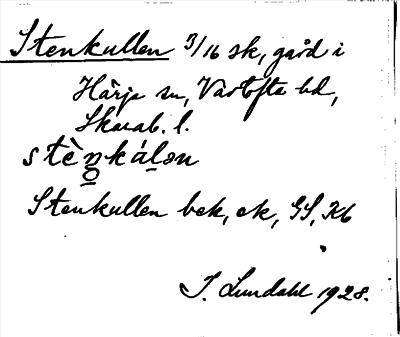 Stenkullen 3/16 sk, gård i
Härja sn, Vartofta hd,
Skarab. l.
Stenkullen bek, ek, GS, Kb
I. Lundahl 1928.